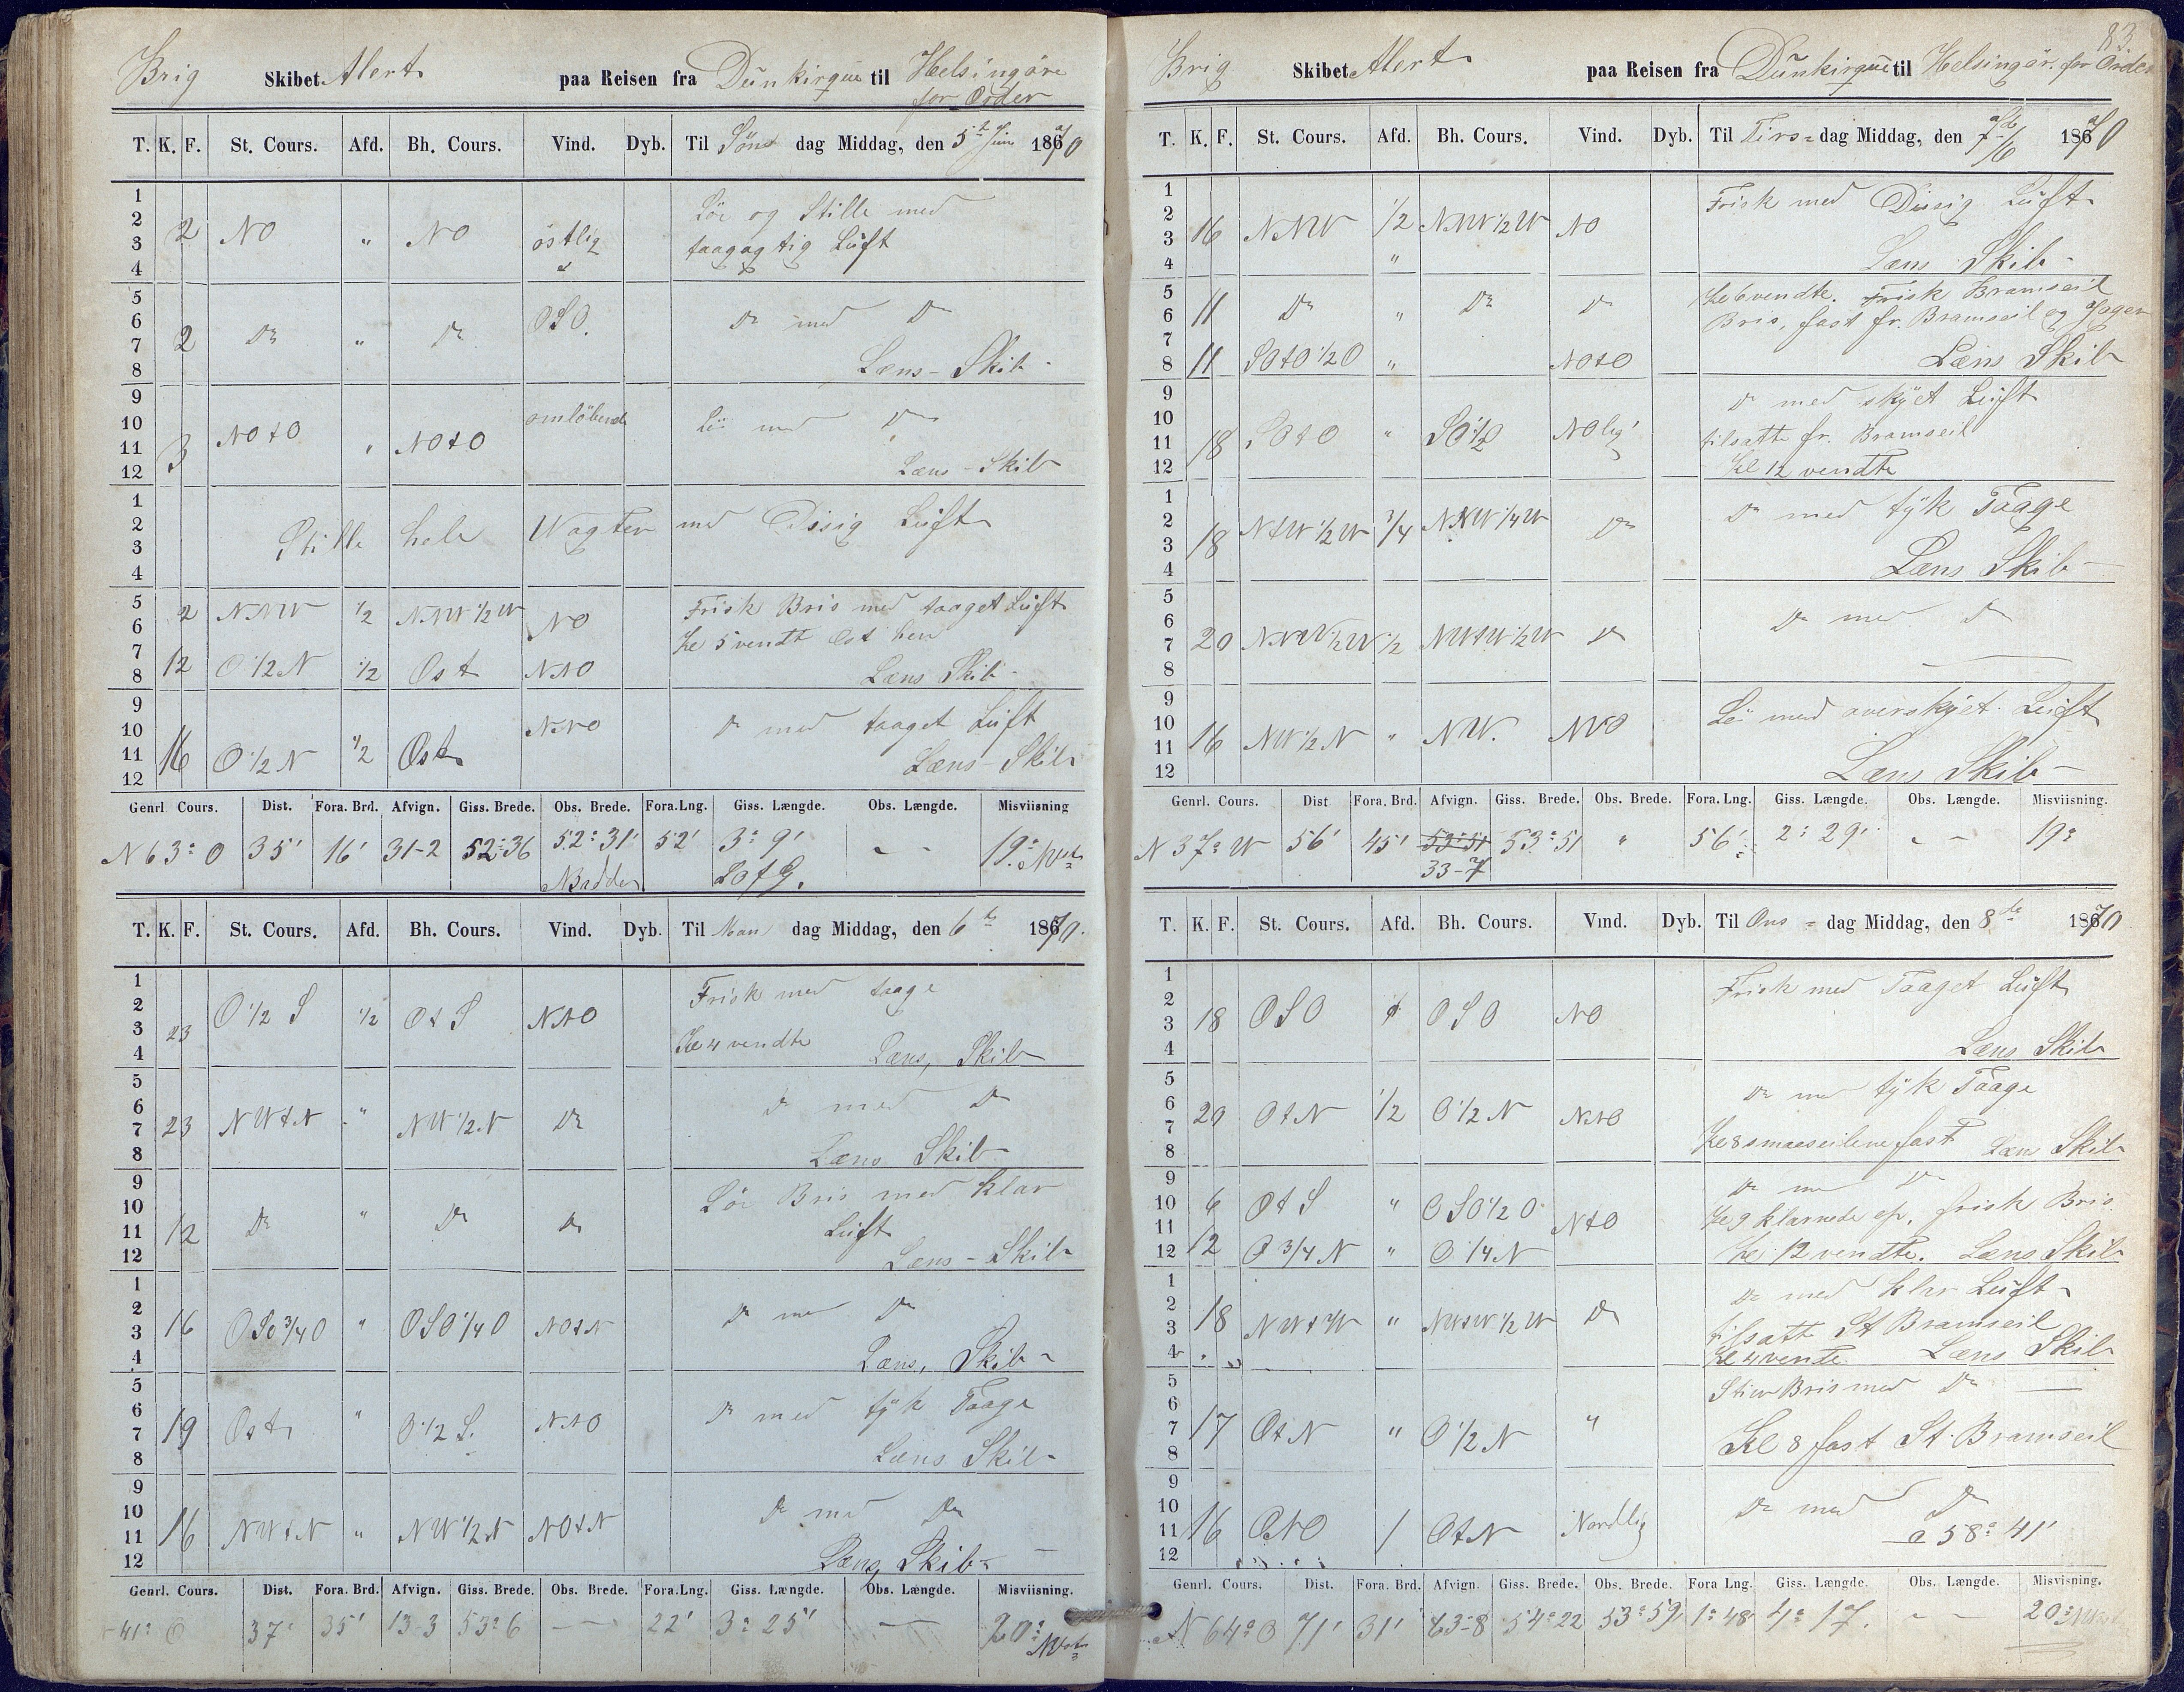 Brig Skibet Alert paa Reisen fra Dunkirque til Helsingöre
for Order
T. K. F. St. Cours. Afd. Bh. Cours. Vind. Dyb. Til Sön dag Middag, den 5te Juni 1870
1
2
3
4
2 NO " NO östlig
Löi og Stille med
taagagtig Luft
5
6
7
8
2 Do " Do OSO.
Do med Do
Læns - Skib
9
10
11
12
3 NOtO " NOtO omlöbende
Löi med Do
Læns - Skib
1
2
3
4
Stille hele Wagten med Disig Luft
5
6
7
8
2 NNW 1/2 NNW 1/2 W NO
12 O 1/2 N 1/2 Ost NNO
Frisk Bris med taaget Luft
Kl 5 vendte Ost hen
Læns Skib
9
10
11
12
16 O 1/2 N 1/2 Ost NNO
Do med taaget Luft
Læns - Skib
Genrl Cours. Dist. Fora. Brd. Afvign. Giss. Brede. Obs. Brede. Fora. Lng. Giss. Længde. Obs. Længde. Misviisning
N 63° O 35' 16' 31-2 52°36 52°31' 52' 3° 9' - - 19° West
T. K. F. St. Cours. Afd. Bh. Cours. Vind. Dyb. Til Man dag Middag, den 6te 1870.
1
2
3
4
23 O 1/2 S 1/2 OtS NNO
Frisk med taage
Kl 4 vendte Læns, Skib
5
6
7
8
23 NWtN " NW 1/2 N Do
Do med Do
Læns Skib
9
10
11
12
12 Do " Do Do
Löi Bris med klar
Luft
Læns - Skib
1
2
3
4
16 OSO 3/4 O " OSO 1/4 O NOtN
Do med Do
Læns, Skib
5
6
7
8
19 Ost " O 1/2 S. NNO
Do med tÿk Taage
Læns Skib
9
10
11
12
16 NWtN " NW 1/2 N NOtN
Do med Do
Læns Skib -
Genrl. Cours. Dist. Fora. Brd. Afvign. Giss. Brede. Obs. Brede. Fora. Lng. Giss. Længde. Obs. Længde. Misviisning.
41° O 37' 35' 13-3 53°6 - 22' 3° 25' - 20° West
83.
Brig Skibet Alert paa Reisen fra Dunkirque til Helsingör. for Order
T. K. F. St. Cours. Afd. Bh. Cours. Vind. Dyb. Til Tirs= dag Middag, den 7de/6 1870
1
2
3
4
16 NNW 1/2 NNW 1/2 W NO
"
Frisk med Disig Luft
Læns Skib -
5
6
7
8
11 Do " Do Do
11 SOtO 1/2 O " NOtO
Kl 6 vendte. Frisk Bramseil
Bris, fast fr. Bramseil og Jager
Læns Skib
9
10
11
12
18 SOtO " SO 1/2 O NOlig
Do med skÿet Luft
tilsatte fr. Bramseil
Kl 12 vendte
1
2
3
4
18 NtW 1/2 W 3/4 NNW 1/4 W Do
Do med tÿk Taage
Læns Skib -
5
6
7
8
20 NNW 1/2 W 1/2 NWtW 1/2 W Do
Do med Do
9
10
11
12
16 NW 1/2 N " NW. NNO
Löi med overskÿet Luft
Læns Skib -
Genrl. Cours. Dist Fora. Brd. Afvign. Giss. Brede. Obs. Brede. Fora. Lng. Giss. Længde. Obs. Længde. Misviisning.
N 37° W 56' 45' 53°51 53°51 " 56' 2° 29' - - 19°
33-7
T. K. F. St. Cours. Afd. Bh. Cours. Vind. Dyb. Til Ons = dag Middag, den 8de 1870
1
2
3
4
18 OSO OSO NO
Frisk med Taaget Luft
Læns Skib
5
6
7
8
20 OtN 1/2 O 1/2 N NNO
Do med tÿk Taage
Kl 8 smaaseilene fast Læns Skib
9
10
11
12
6 OtS " OSO 1/2 O NtO
12 O 3/4 N " O 1/4 N
Do med Do
Kl 9 klarnede op, frisk Bris
Kl 12 vendte. Læns Skib
1
2
3
4
18 NWtW " NWtW 1/2 W Do
Do med klar Luft
tilsatte St Bramseil
Kl 4 vente Læns Skib
5
6
7
8
17 OtN " O 1/2 N "
Stiv Bris med Do
Kl 8 fast St. Bramseil
9
10
11
12
16 ONO 1 OtN Nordlig
Do med Do
a 58° 41'
Genrl. Cours. Dist. Fora. Brd. Afvign. Giss. Brede. Obs. Brede. Fora Lng. Giss. Længde. Obs. Længde. Misvisning.
N 64° O 71' 31' 63-8 54°22 53°59 1°48' 4° 17. - - 20°